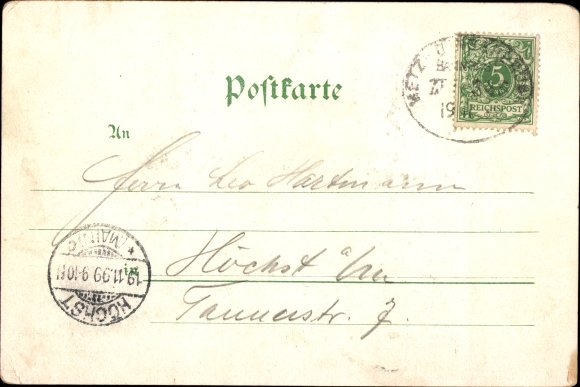 Postkarte
5
REICHSPOST
METZ
19
An
Herrn Leo Hartmann
in
Höchst a/m
Taunusstr. 7.
HÖCHST
19.11.99 9-10
* MAIN *